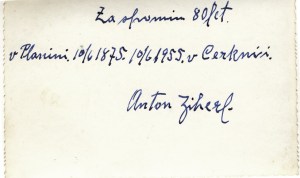 Za spomin 80 let.
v Planini. 10/6 1875. 10/6 1955. v Cerknici.
Anton Ziherl.